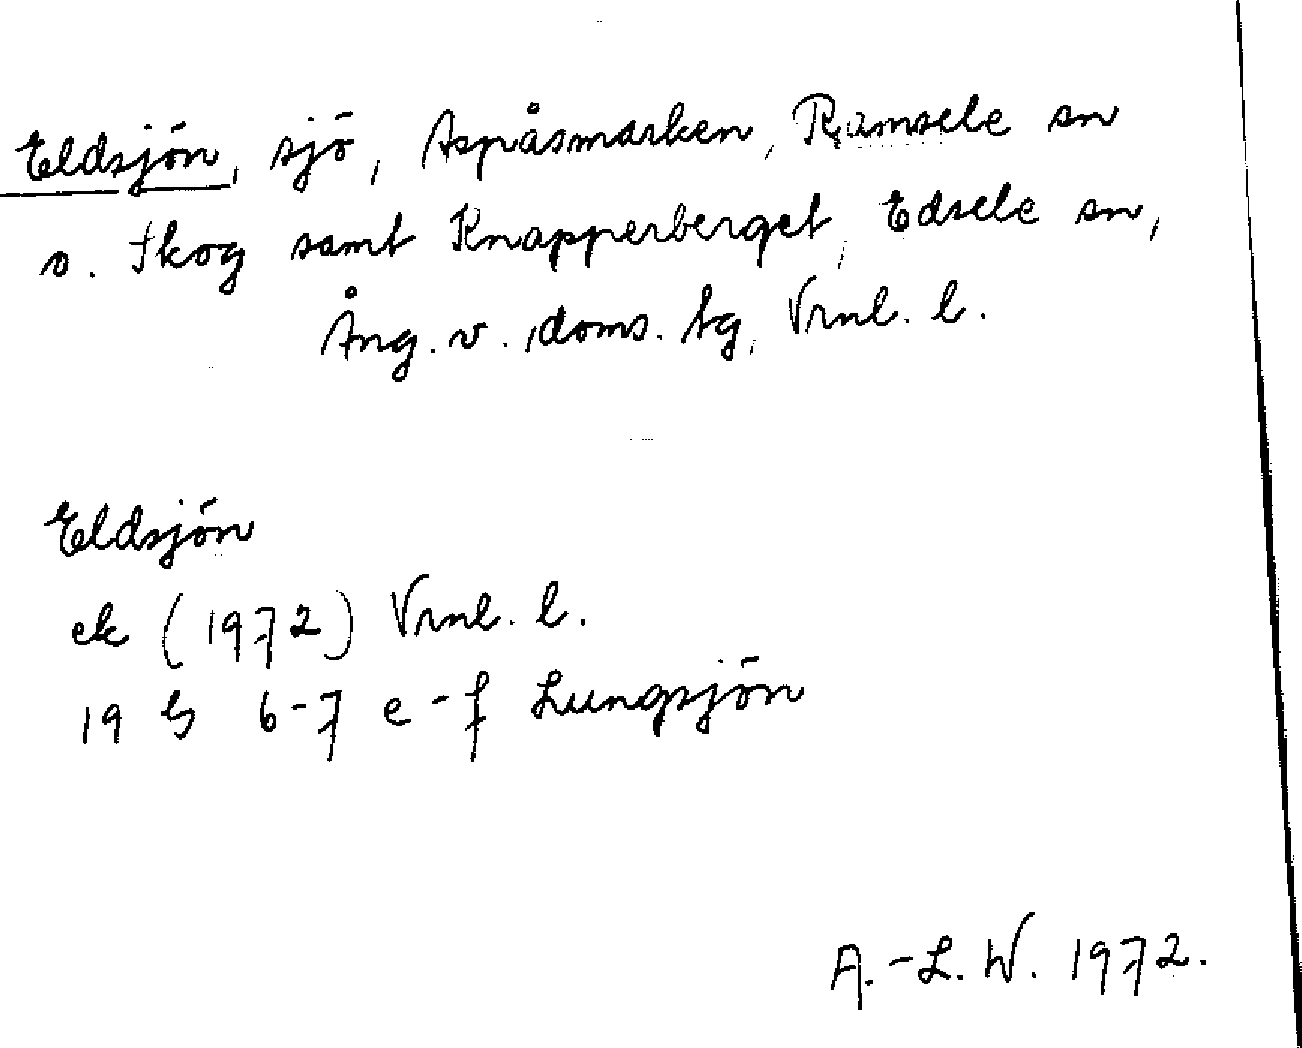 Eldsjön, sjö, Aspåsmarken, Ramsele sn
o. Skog samt Knapperberget, Edsele sn,
Ång. v. doms. tg, Vrnl. l.
Eldsjön
ek (1972) Vrnl. l.
19 G 6-7 e-f Lungsjön
A.-L. W. 1972.